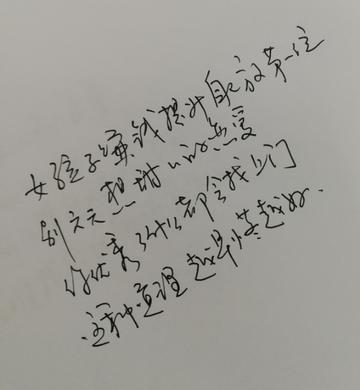 女孩子赚钱提升自己放第一位
别天天想甜甜的恋爱
你优秀了什么都会找上门
这种道理越早懂越好.